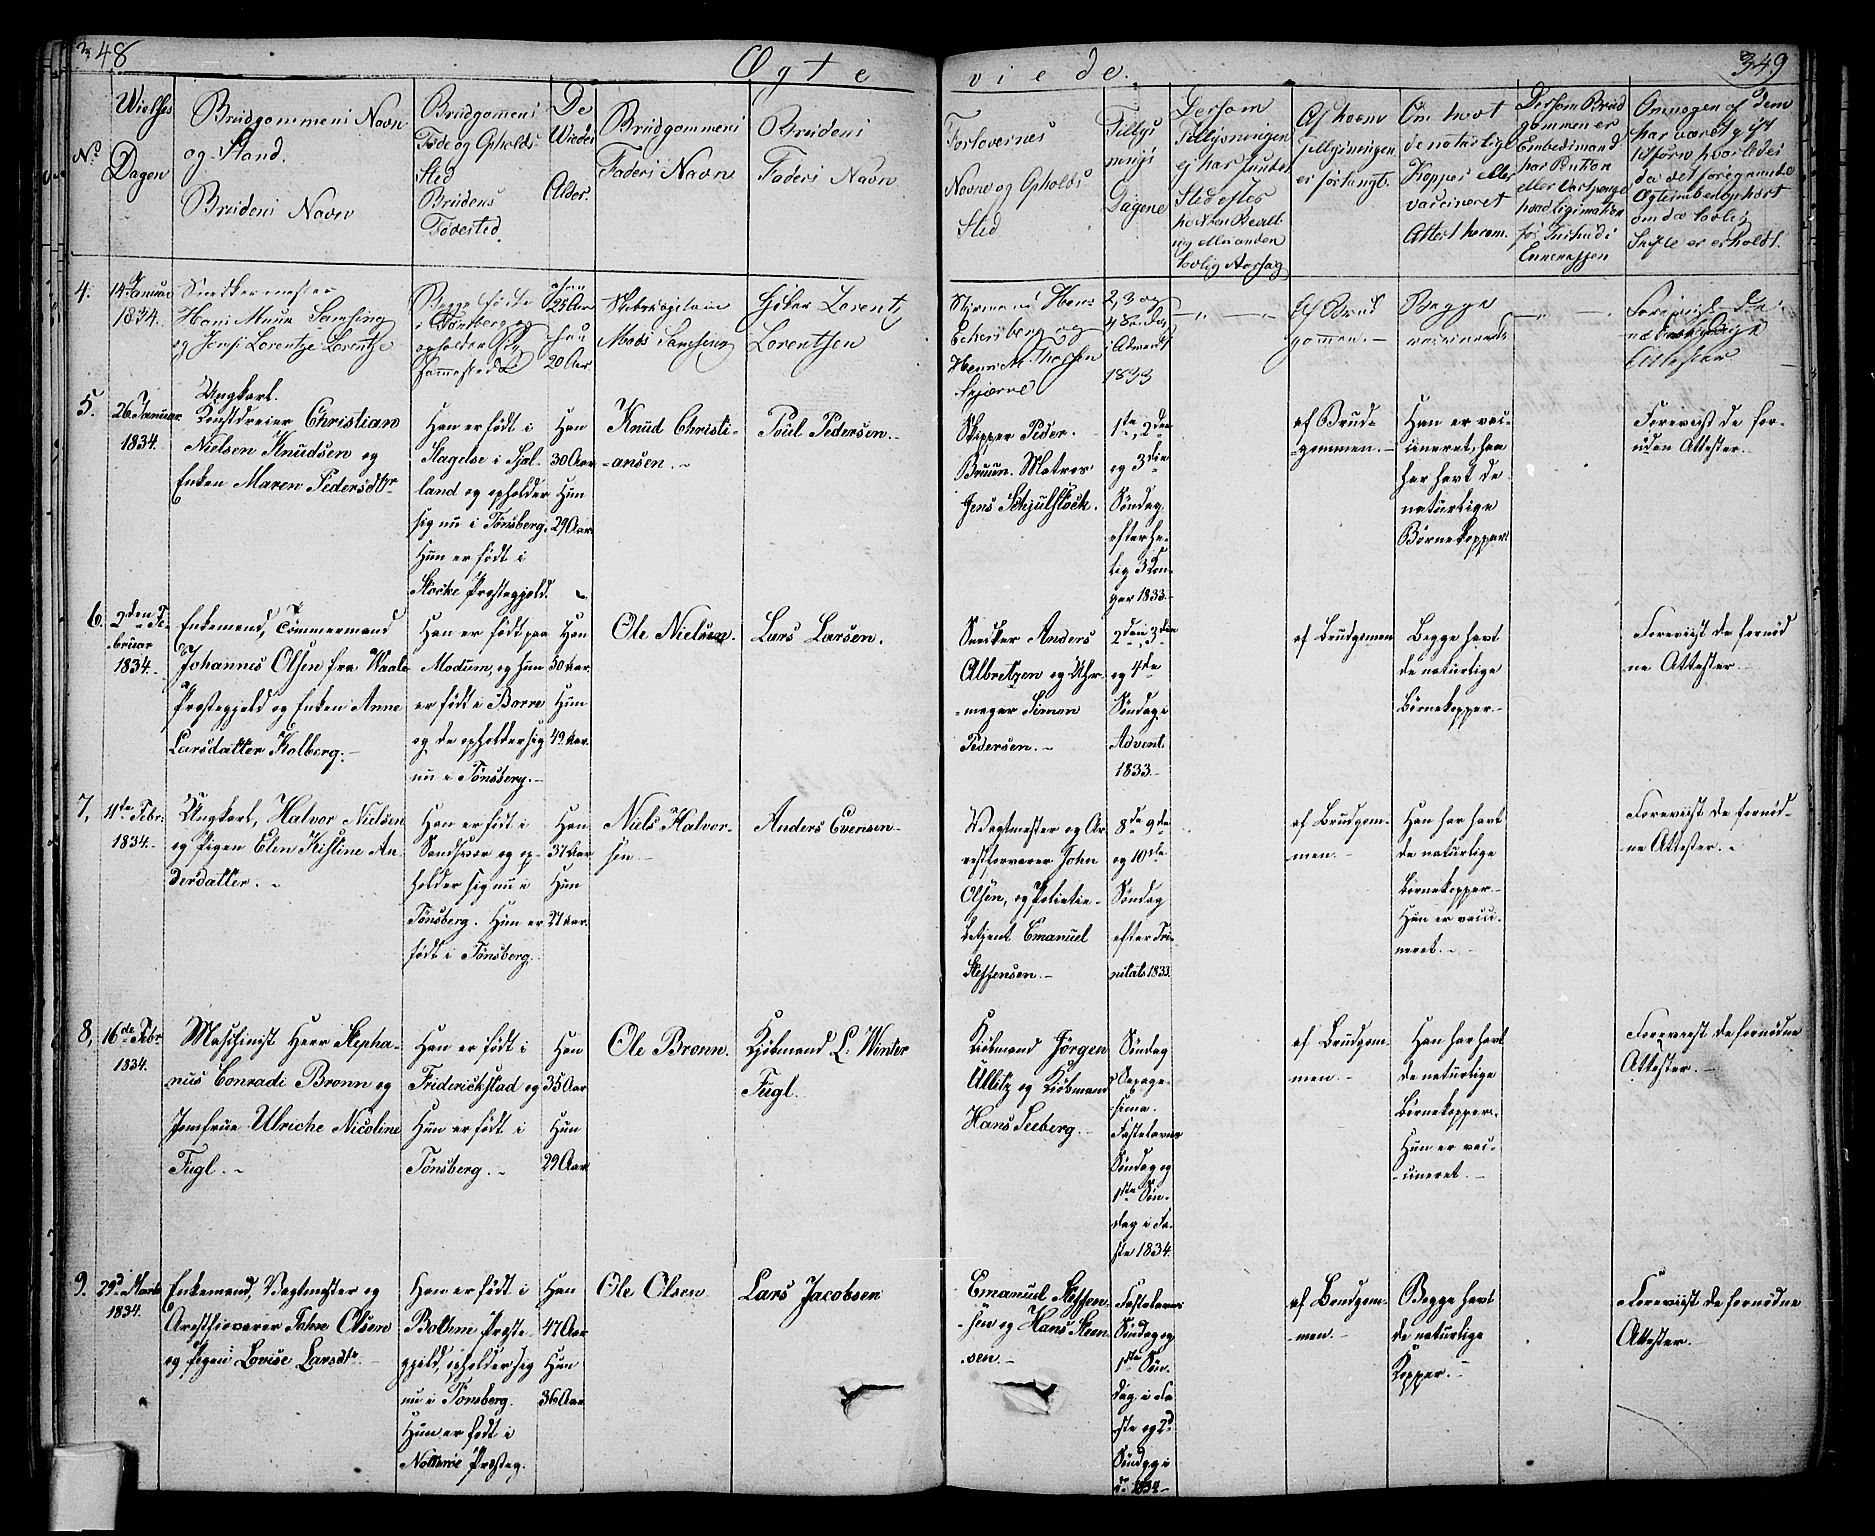 348
Ægte
viede.
349
No
Vielses Dagen
Brudgommens Navn
og Stand.
Brudens Navn
Brudgommens
Føde og Opholds
Sted
Brudens
Fødested.
De
Viedes
Alder.
Brudgommens
Faders Navn
Brudens
Faders Navn
Forlovernes
Navne og Opholds
Sted
Tillys
nings
Dagene
Dersom
Tillysningen
ej har fundet
Sted efter
anden
lovlig Aarsag
Af hvem
Tillysningen
er forlangt.
Om havt
de naturlige
Kopper eller
vaccineret
Attest herom.
Dersom Brud
gommen er
Embedsmand
har Pention
eller Vartpenge
Enkecassen
Om nogen af dem
har været gift
tilforn, hvorledes
da det foregaaende
Ægteskab er ophørt
om da lovlig
Skifte er erholdt.
4.
14 Januar
1834.
Snedkermester
Hans Samsing
og Jomf. Lorentze Lorentze
Begge fødte
i Tønsberg og
opholder sig
sammesteds
Han
25 Aar
Hun
20 Aar
Skibscapitain
Mads Samsing
Lorentz
Lorentsen
Hans
Eckersberg og
Henr. M. Thorsen
2, 3 og
4 Søndag
i Advent
1833
— „ —
Af Brud
gommen. —
Begge
vaccinerede
— „ —
Foreviist de
nødvendige
Attester
5.
26 Januar
1834.
Ungkarl.
Kunstdreier Christian
Nielsen Knudsen og
Enken Maren Pedersdtr
Han er født i
Slagelse i Sjæl-
land og opholder
sig nu i Tønsberg.
Hun er født i
Stocke Præstegjeld.
Han
30 Aar
Hun
29 Aar
Knud Christi-
-ansen. -
Poul Pedersen. -
Skipper Peder
Bruun. Matros
Jens Schjulstock.
1ste, 2den
og 3die
Søndag
efter hel-
lig 3 Kon-
ger 1833.
af Brud-
-gommen. -
Han er vac-
cineret, hun
har havt de
naturlige
Børnekopper
Foreviist de for-
nøden Attester. -
6.
2den Fe-
bruar
1834. -
Enkemand, Tømmermand
Johannes Olsen fra Waale
Præstegjeld og Enken Anne
Larsdatter Kolberg. -
Han er født paa
Modum, og hun
er født i Borre
og de opholder sig
nu i Tønsberg. -
Han
50 Aar
Hun
49 Aar.
Ole Nielsen.
Lars Larsen.
Snedker Anders
Albretzen og Uhr-
-mager Simon
Pedersen. -
2den, 3die
og 4de
Søndag i
Advent
1833. -
af Brudgomen
Begge havt
de naturlige
Børnekopper. -
Foreviist de fornød
ne Attester. -
7,
11te Febr.
1834. -
Ungkarl, Halvor Nielsen
og Pigen Elen Kistine An
dersdatter. -
Han er født i
Sandsvær og op-
holder sig nu i
Tønsberg. Hun er
født i Tønsberg.
Han
37 Aar
Hun
21 Aar.
Niels Halvor-
sen -
Anders Evensen -
Vagtmester og Ar
restforvarer John
Olsen, og Politie-
betjent Emanuel
Steffensen. -
8de 9de
og 10de
Søndag
efter Tri-
nitatis 1833.
af Brudgom-
men. -
Han har havt
de naturlige
Børnekopper -
Hun er vacci-
neret. -
Foreviist de fornød-
ne Attester. -
8,
16de Febr.
1834.
Maschinist Herr Stepha-
nus Conradi Bronn og
Jomfrue Ulriche Nicoline
Fugl. -
Han er født i
Friderickstad og
Hun er født i
Tønsberg. -
Han
35 Aar
Hun
29 Aar
Ole Bronn.
Kjøbmand L: Winter
Fugl.
Kiøbmand Jörgen
Ullitz og Kiøbmand
Hans Seeberg. -
Søndag
Sexage-
sima.
Fastelavns
Søndag og
1ste Søn-
dag i Fa-
ste 1834.
af Brudgom-
men. -
Han har havt
de naturlige
Børnekopper.
Hun er vac-
-cineret. -
Foreviist de fornødne
Attester. -
9.
29d Marts
1834.
Enkemand, Vagtmester og
Arestforvarer John Olsen
og Pigen Lovise Larsdtr. -
Han er født i
Bottne Præste-
gjeld, opholder sig
nu i Tønsberg.
Hun er født i
Nötteröe Præsteg.
Han
47 Aar
Hun
36 Aar
Ole Olsen
Lars Jacobsen
Emanuel Steffen
-sen og Hans Steen
sen. -
Fastelavns
Søndag og
1ste Søn-
dag i Fa-
ste og 2d
Søndag i
do 1834 -
af Brudgom-
men. -
Begge havt
de naturlige
Kopper. -
Foreviist de fornødne
Attester. -